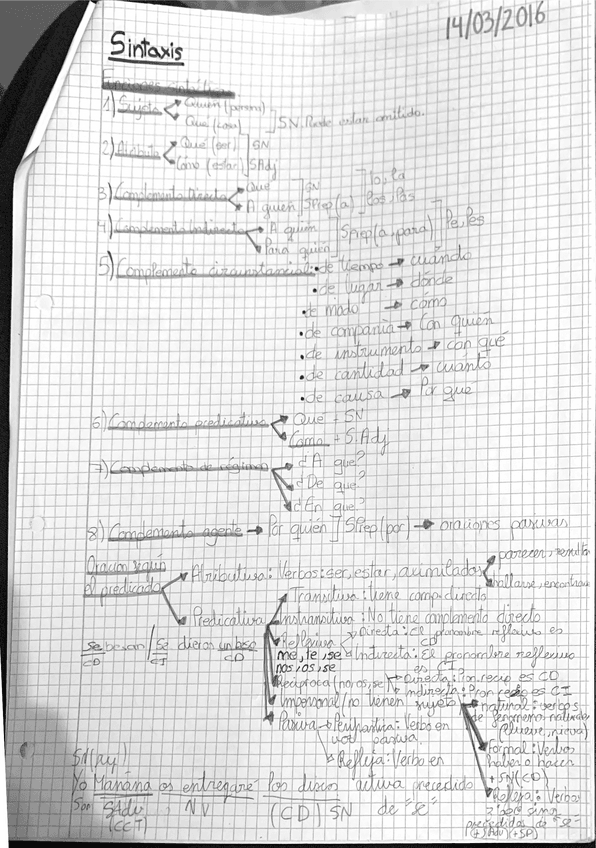 14/03/2016
Sintaxis
Funciones sintácticas
1) Sujeto Quién (persona)
Qué (cosa) ] SN. Puede estar omitido.
2) Atributo Qué (ser) ] SN
Cómo (estar) ] SAdj
3) Complemento Directo Qué ] SN lo, la
A quien ] SPrep (a) los, las
4) Complemento Indirecto A quién
Para quién ] SPrep (a, para) ] le, les
5) Complemento circunstancial: • de tiempo → cuándo
• de lugar → dónde
• de modo → cómo
• de compañía → Con quién
• de instrumento → con qué
• de cantidad → cuánto
• de causa → Por qué
6) Complemento predicativo Qué + SN
Como + S.Adj
7) Complemento de régimen ¿A que?
¿De que?
¿En que?
8) Complemento agente → Por quién ] SPrep (por) → oraciones pasivas
Oracion según
el predicado
Atributiva: Verbos: ser, estar, asimilados
parecer, resultar
hallarse, encontrarse
Predicativa
Transitiva: tiene comp. directo
Instransitiva: No tiene complemento directo
Reflexiva
me, te, se
nos, os, se
Directa: El pronombre reflexivo es CD
Indirecta: El pronombre reflexivo es CI
se besan / Se dieron un beso
CD CI CD
Recíproca (nos, os, se) Directa: Pron. recip es CD
Indirecta: Pron. recip es CI
Impersonal (no tienen sujeto)
natural: verbos
de fenomenos naturales
(llueve, nieva)
Formal: Verbos
haber o hacer
+ SN (CD)
Refleja: Verbos
precedidos de "se"
(+SAdv) (+SP)
Pasiva Perifrastica: Verbo en
voz pasiva
Refleja: Verbo en
activa precedido
de "se"
Yo Mañana os entregaré los discos
SAdv NV (CD) SN
(CCT)